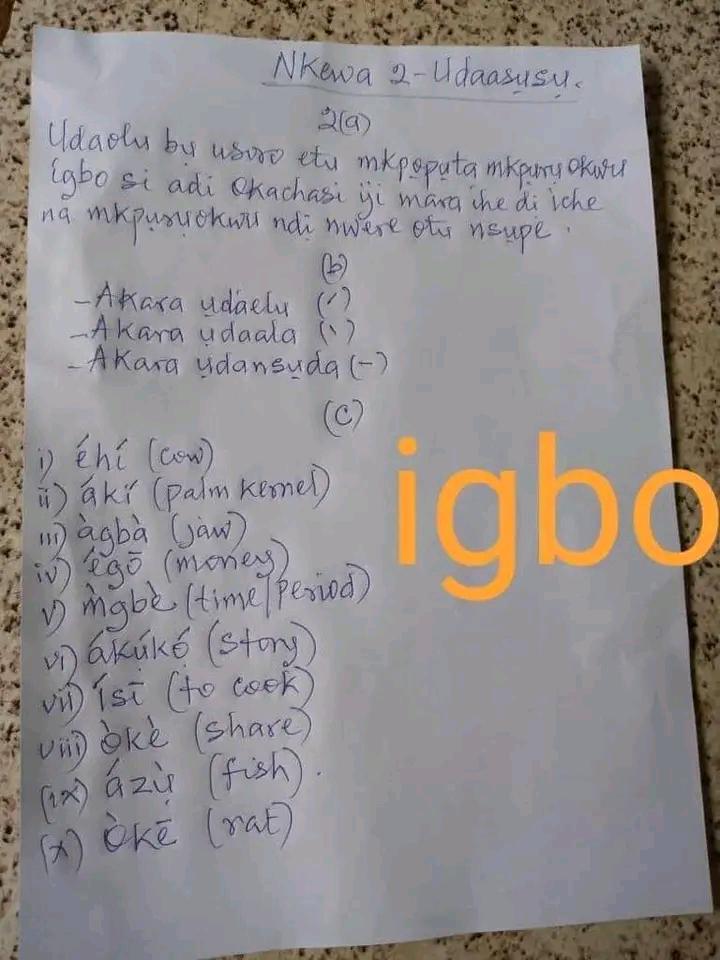 Nkewa 2-Udaasụsụ.
2(a)
Udaolu bụ usoro etu mkpọpụta mkpụrụ okwu
igbo si adi Okachasi iji mara ihe di iche
na mkpụrụokwu ndi nwere otu nsụpe.
(b)
- Akara ụdaelu (´)
- Akara ụdaala (`)
- Akara ụdansụda (-)
(c)
i) éhí (cow)
ii) ákí (palm kernel)
iii) àgbà (jaw)
iv) égō (money)
v) m̀gbè (time/period)
vi) ákụ́kọ́ (story)
vii) ísī (to cook)
viii) òkè (share)
(ix) ázụ̀ (fish).
(x) òkē (rat)
igbo